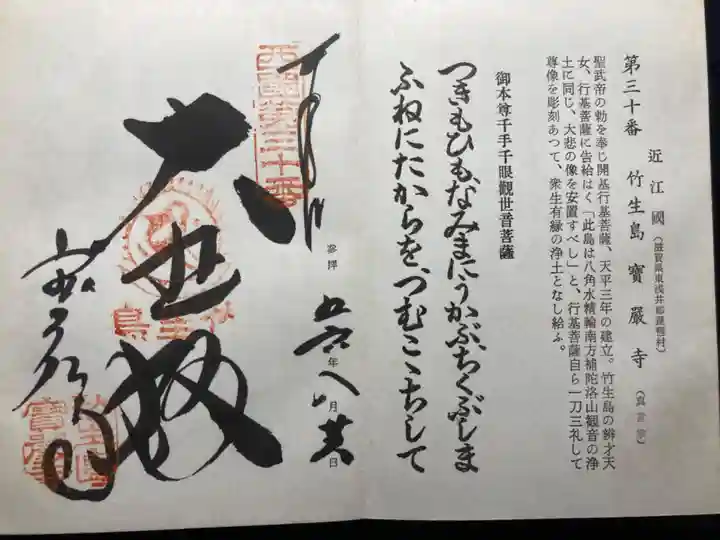 第三十番　近江國（滋賀県東浅井郡びわ村）竹生島寶嚴寺（真言宗）
聖武帝の勅を奉じ開基行基菩薩、天平三年の建立。竹生島の辨才天
女、行基菩薩に告給はく「此島は八角水精輪南方補陀洛山観音の浄
土に同じ、大悲の像を安置すべし」と、行基菩薩自ら一刀三礼して
尊像を彫刻あつて、衆生有縁の浄土となし給ふ。
御本尊千手千眼觀世音菩薩
つきもひも、なみまにうかぶちくぶしま
ふねにたからを、つむこゝちして
西國第三十番
參拝 年八月 日
大悲殿
竹生島
寶嚴寺